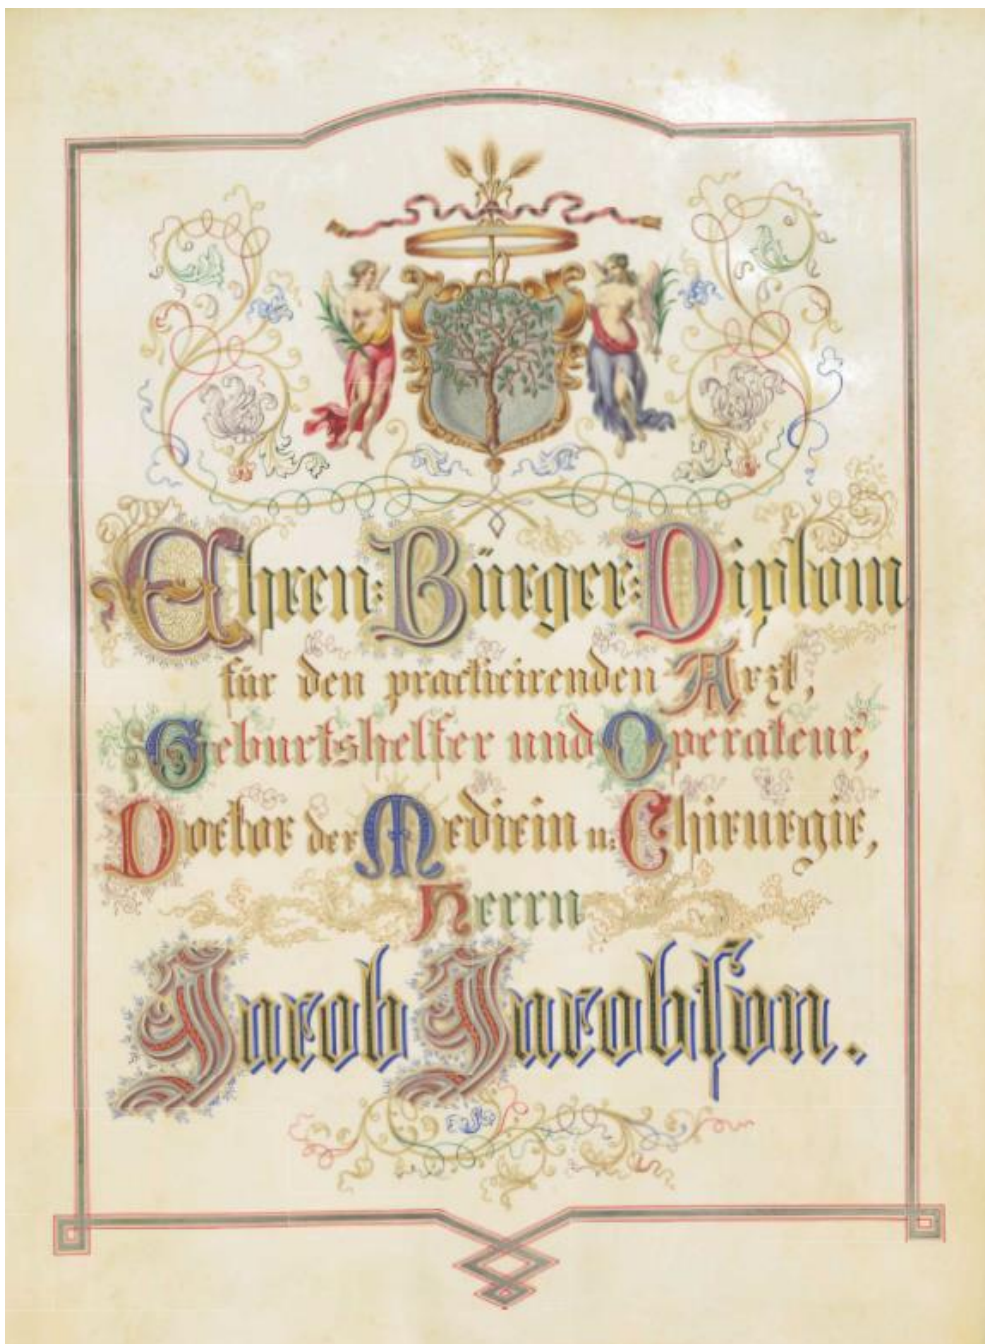 Ehren-Bürger-Diplom
für den practicirenden Arzt,
Geburtshelfer und Operateur,
Doctor der Medicin u: Chirurgie,
Herrn
Jacob Jacobson.